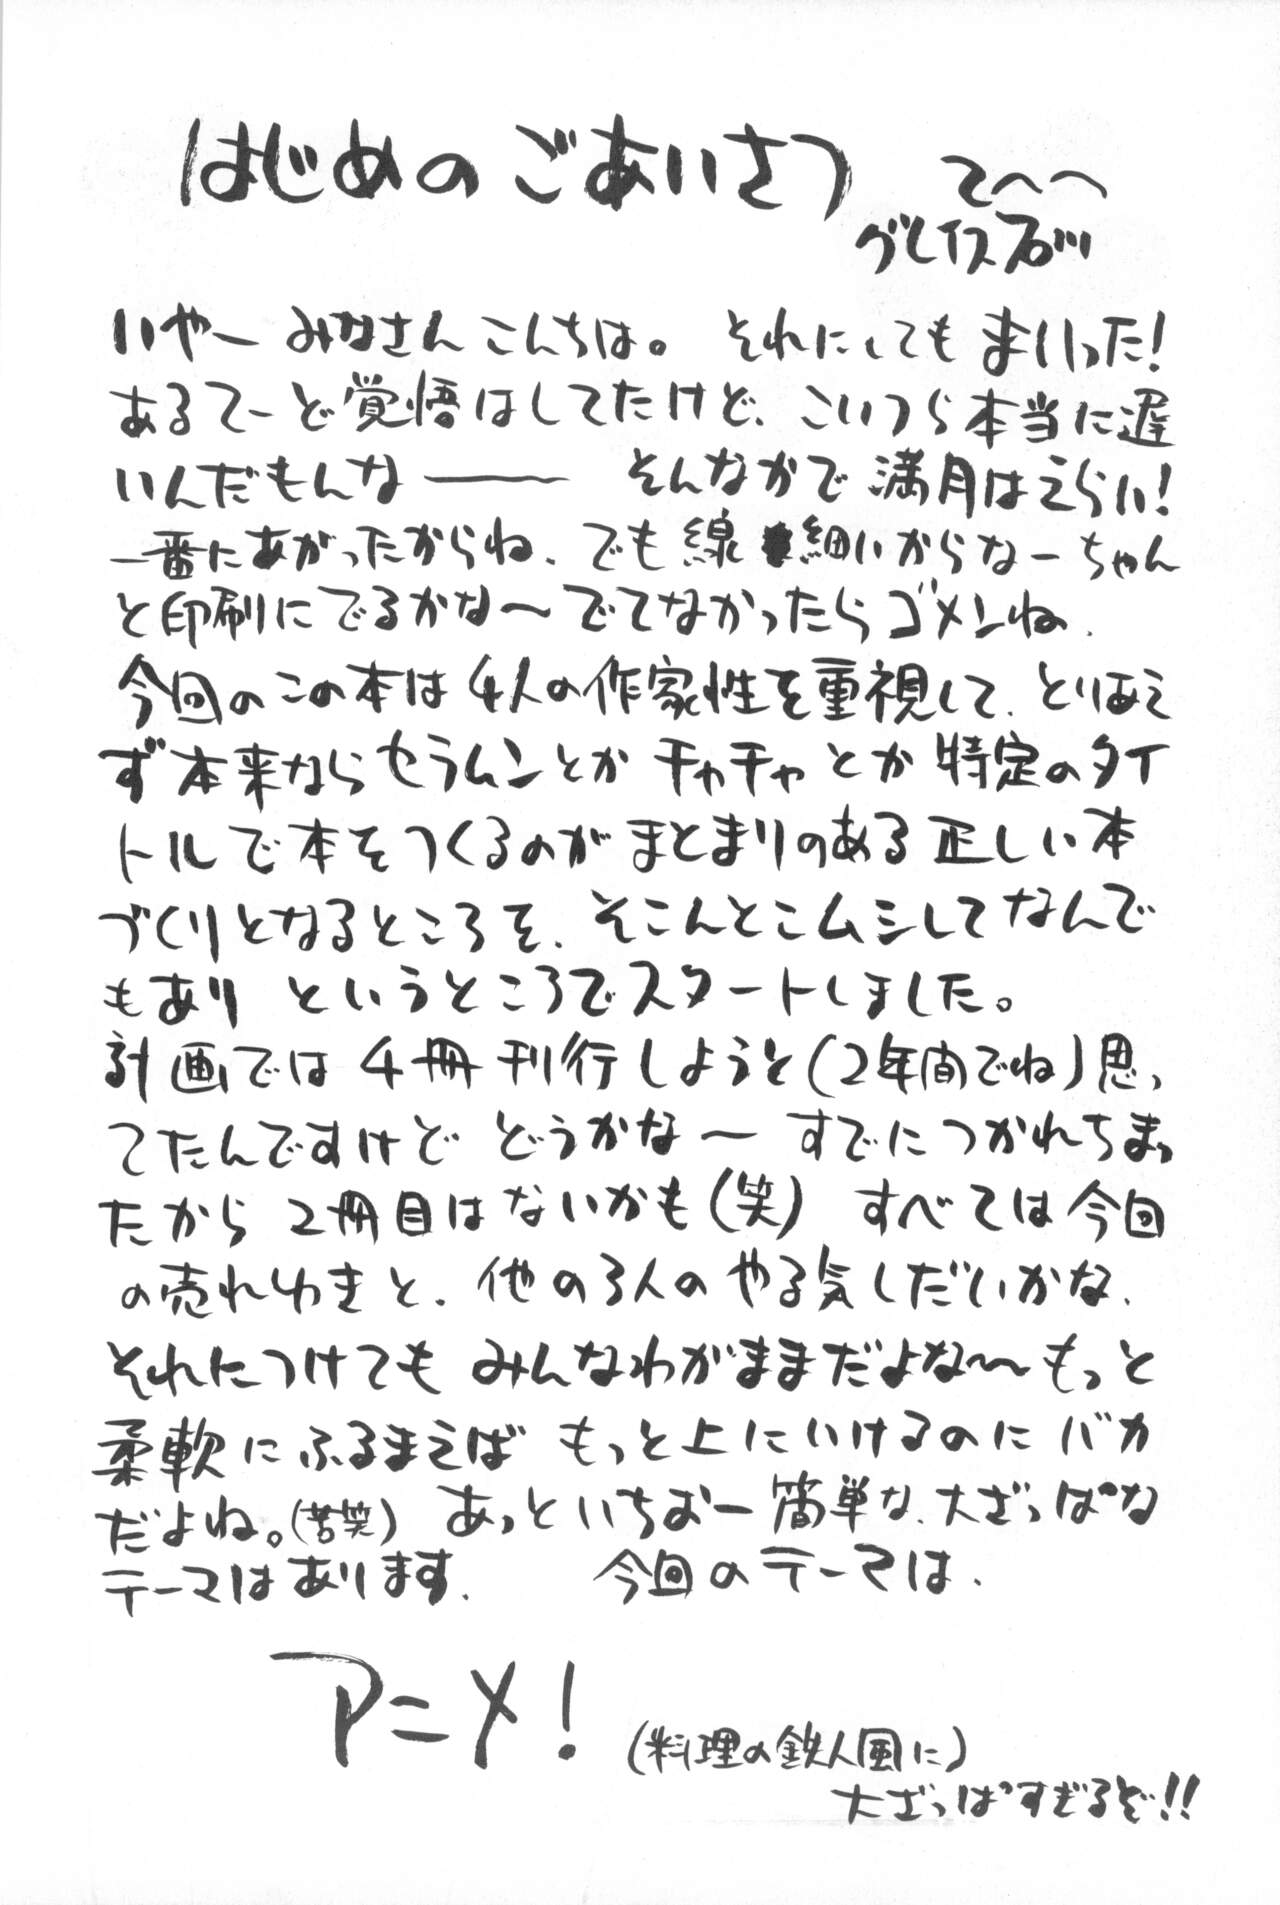 はじめのごあいさつ
てへへ
グレイス
いやー みなさん こんちは。 それにしても まいった!
あるてーど覚悟はしてたけど、こいつら本当に遅
いんだもんなー そんなかで 満月はえらい!
一番にあがったからね、でも線 細いからなーちゃん
と印刷にでるかな〜でてなかったらゴメンね、
今回のこの本は4人の作家性を重視して、とりあえ
ず本来ならセラムンとかチャチャとか特定のタイ
トルで本をつくるのがまとまりのある正しい本
づくりとなるところを、そこんとこムシしてなんで
もあり というところでスタートしました。
計画では4冊刊行しようと(2年間でね)思っ
てたんですけど どうかな〜 すでにつかれちまっ
たから 2冊目はないかも(笑) すべては今回
の売れゆきと、他の3人のやる気しだいかな、
それにつけても みんなわがままだよな〜もっと
柔軟にふるまえば もっと上にいけるのにバカ
だよね。(苦笑) あっといちおー簡単な、大ざっぱな
テーマはあります、 今回のテーマは、
アニメ!
(料理の鉄人風に)
大ざっぱすぎるぞ!!